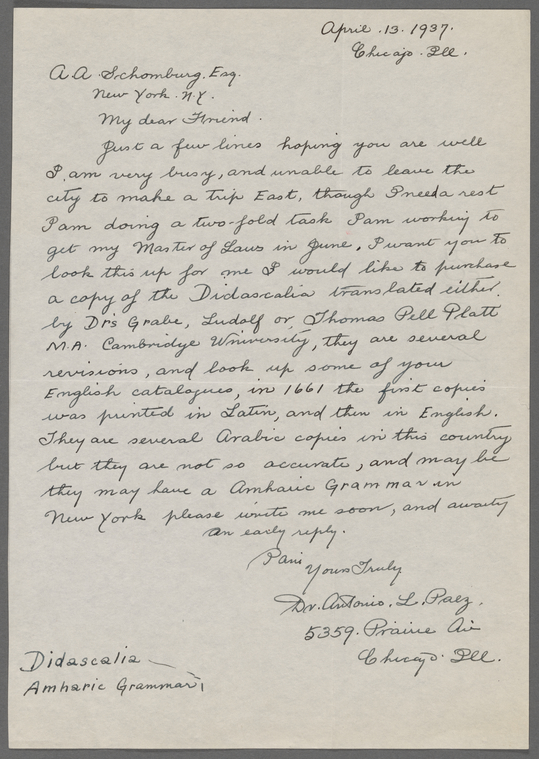 April .13.1937.
Chicago. Ill.
A.A. Schomburg. Esq.
New York. N.Y.
My dear Friend.
Just a few lines hoping you are well
I.am very busy, and unable to leave the
city to make a trip East, though I need a rest
I am doing a two-fold task I am working to
get my Master of Laws in June. I want you to
look this up for me I would like to purchase
a copy of the Didascalia translated either
by Drs Grabe, Ludolf or, Thomas Pell Platt
M.A. Cambridge University, they are several
revisions, and look up some of your
English catalogues, in 1661 the first copies
was printed in Latin, and then in English.
They are several Arabic copies in this country
but they are not so accurate, and may be
they may have a Amharic Grammar in
New York please write me soon, and awaity
an early reply.
I am
Yours Truly
Dr. Antonio. L. Paez.
5359. Prairie Ave
Chicago. Ill.
Didascalia
Amharic Grammar